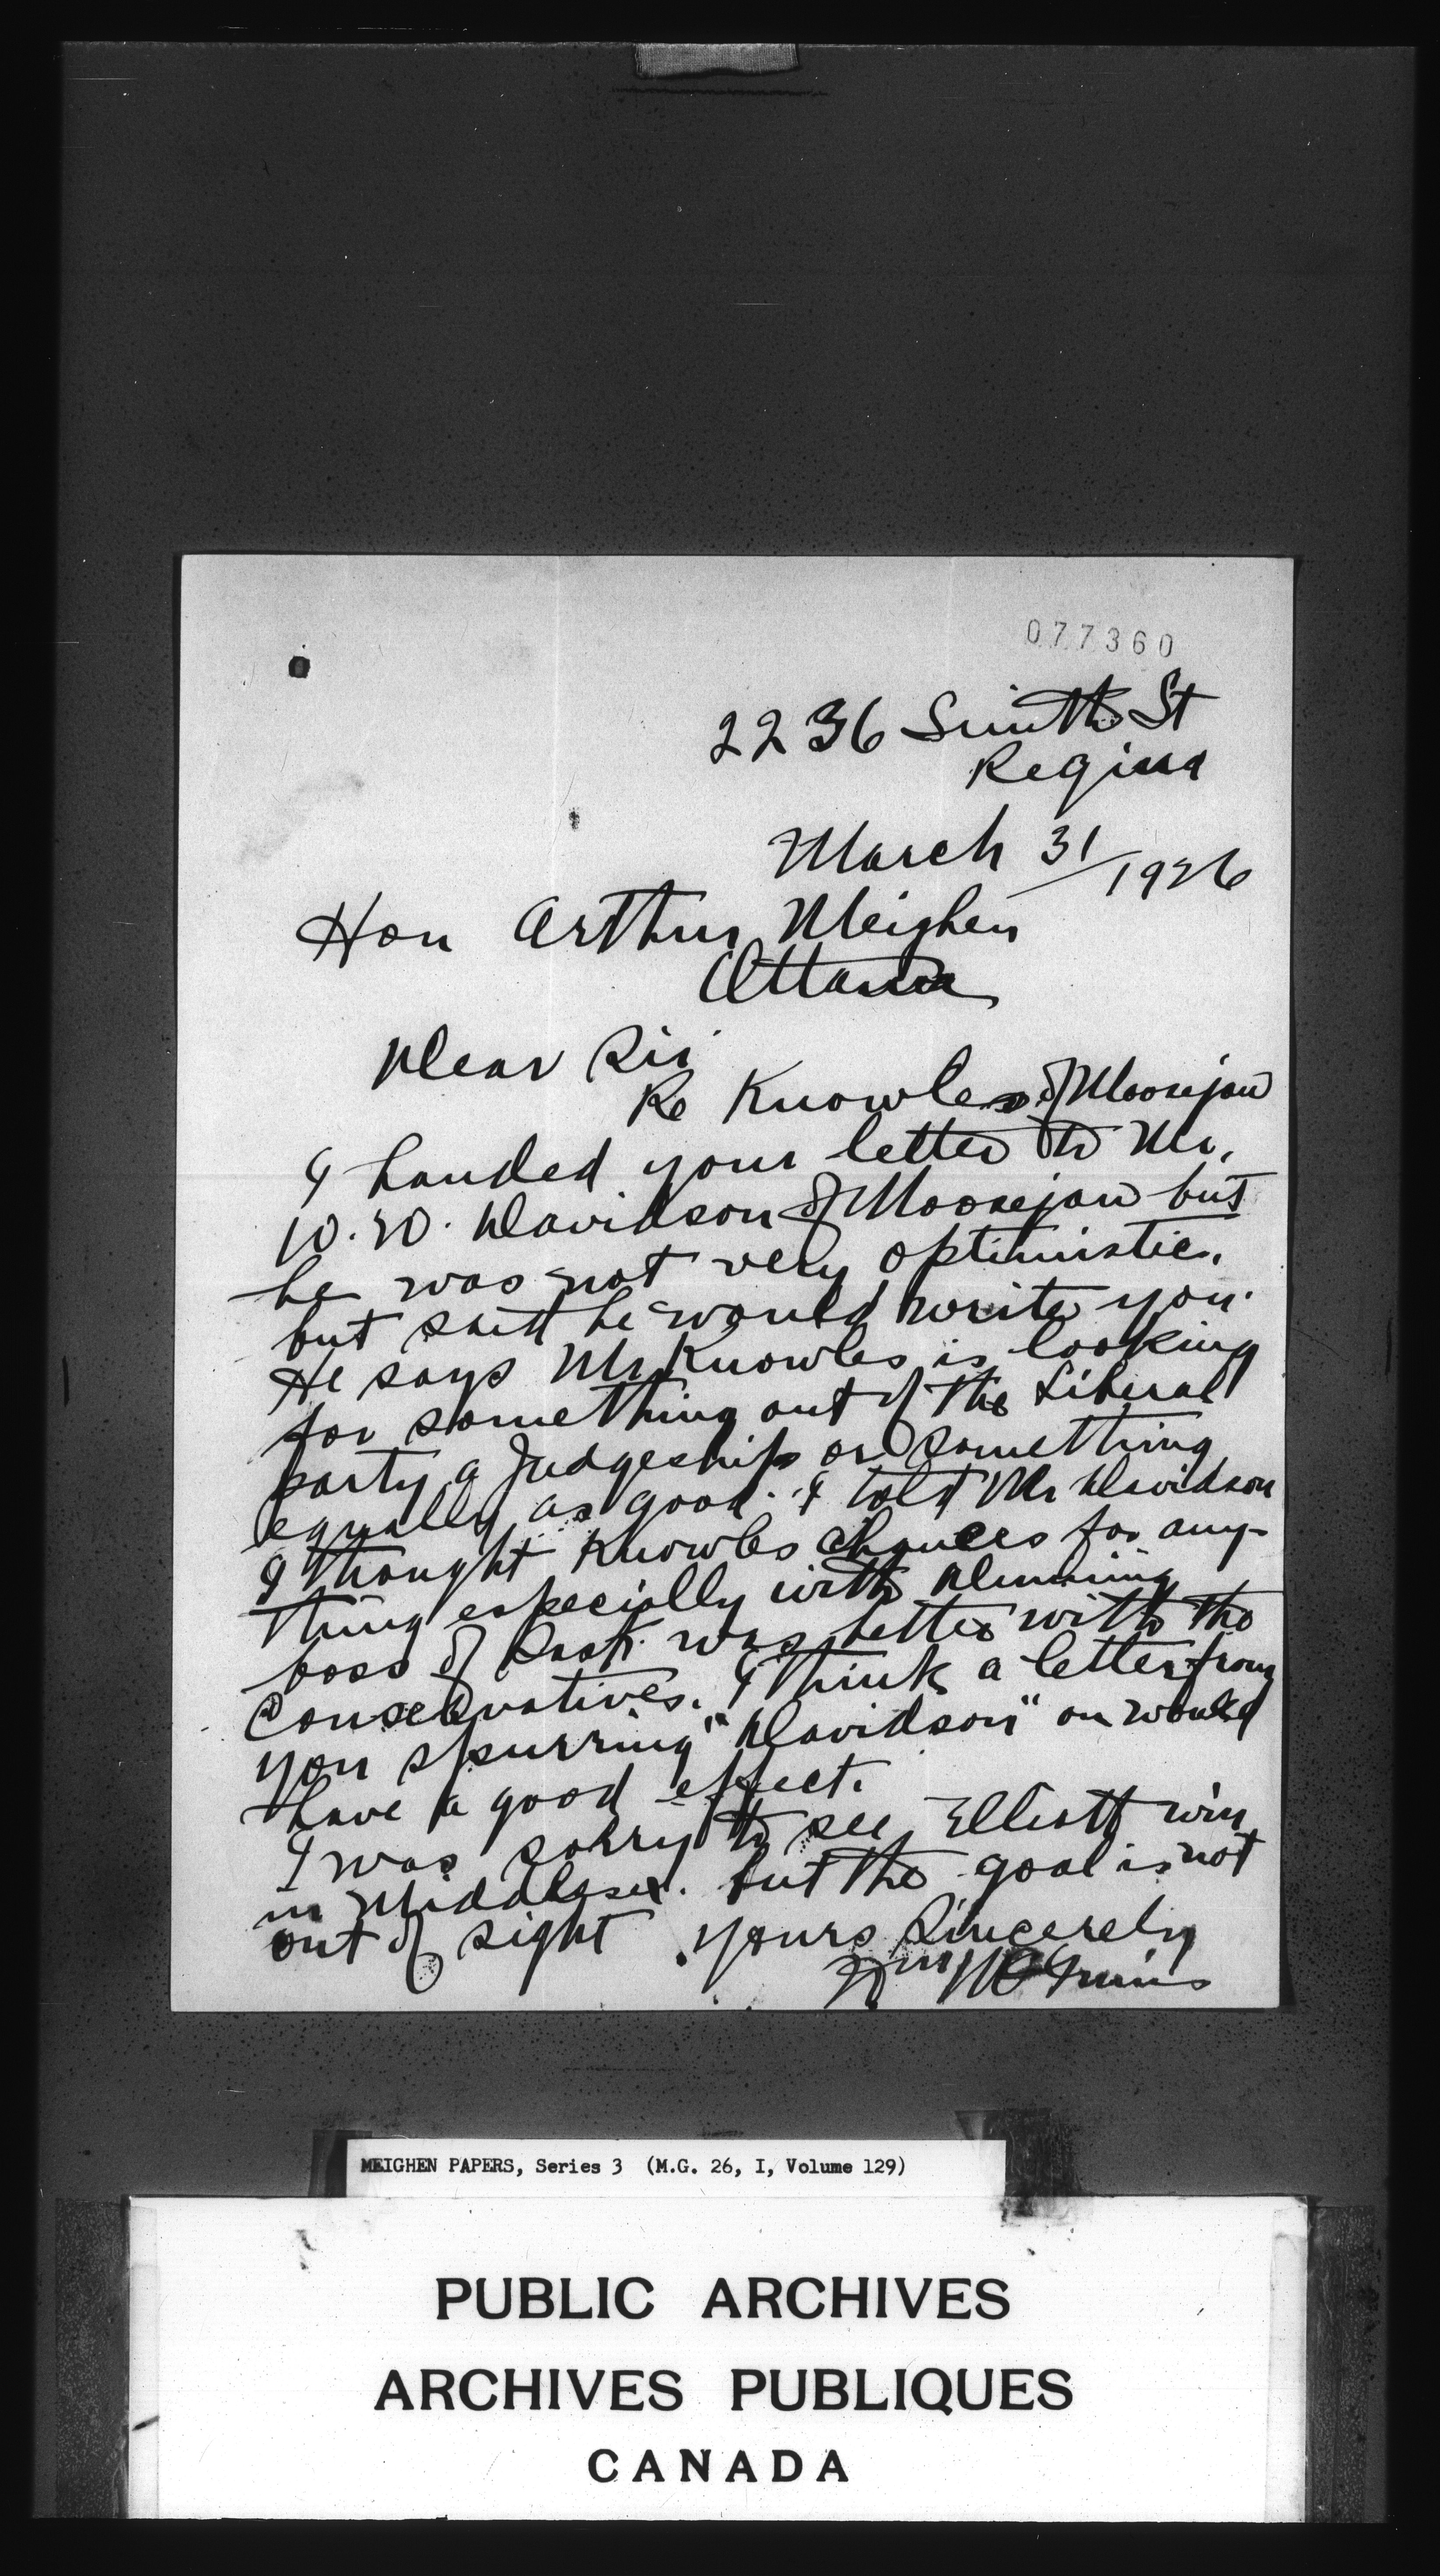 077360
2236 Smith St
Regina
March 31/1926
Hon Arthur Meighen
Ottawa
Dear Sir
Re Knowles of Moosejaw
I handed your letter to Mr.
W. W. Davidson of Moosejaw but
he was not very optimistic.
but said he would write you.
He says Mr Knowles is looking
for something out of the Liberal
party a Judgeship or something
equally as good. I told Mr Davidson
I thought Knowles chances for any-
thing especially with Dunning
boss of Sask. was better with the
Conservatives. I think a letter from
you spurring "Davidson" on would
have a good effect.
I was sorry to see Elliott win
in Middlesex. but the goal is not
out of sight Yours Sincerely
Wm
MEIGHEN PAPERS, Series 3 (M.G. 26, I, Volume 129)
PUBLIC ARCHIVES
ARCHIVES PUBLIQUES
CANADA